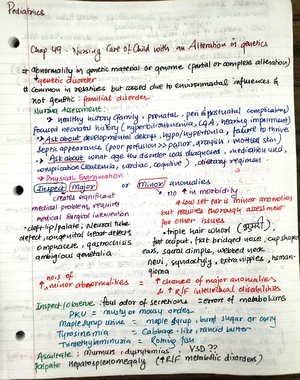 Pediatrics
Chap 49 - Nursing Care of Child with an Alteration in genetics
# abnormality in genetic material or genome (partial or complete alteration)
↳ genetic disorder
# common in relatives but caused due to environmental influences &
not genetic : familial disorder.
Nursing Assessment:
> Healthy history (family, prenatal, peri & postnatal complication)
Focused neonatal history (hyperbilirubinemia, LGA, hearing impairment)
> Ask about developmental delays, hypo/hypertonia, failure to thrive
Septic appearance (poor perfusion >> pallor, grayish, mottled skin)
> Ask about what age the disorder was diagnosed, medication used,
complication (leukemia, cardiac, cognitive), dietary regimen
> Physical Examination
Inspect Major or Minor anomalies
creates significant
medical problem, require
medical surgical intervention
- cleft lip/palate, Neural tube
defect, congenital heart defects
omphalocele, gastroschisis
ambiguous genitalia
> no ↑ in morbidity
# low set ear is minor anomalies
but requires thorough assessment
for other issues
• triple hair whorl
flat occiput, flat bridged nose, cup shape
ears, sacral dimple, webbed neck
nevi, syndactyly, extra nipples, heman-
gioma
no.s of
↑ minor abnormalities = ↑ chance of major anomalies
& ↑ R/F intellectual disabilities
Inspect/observe: foul odor of secretions = error of metabolisms
PKU = musty or mousy order
Maple syrup urine = maple syrup, burnt sugar or curry
Tyrosinemia = Cabbage-like, rancid butter
Trimethylaminuria = Rotting fish
Auscultate: Murmurs, dysrhythmias, VSD??
Palpate: Hepatosplenomegaly (↑ R/F metabolic disorders)